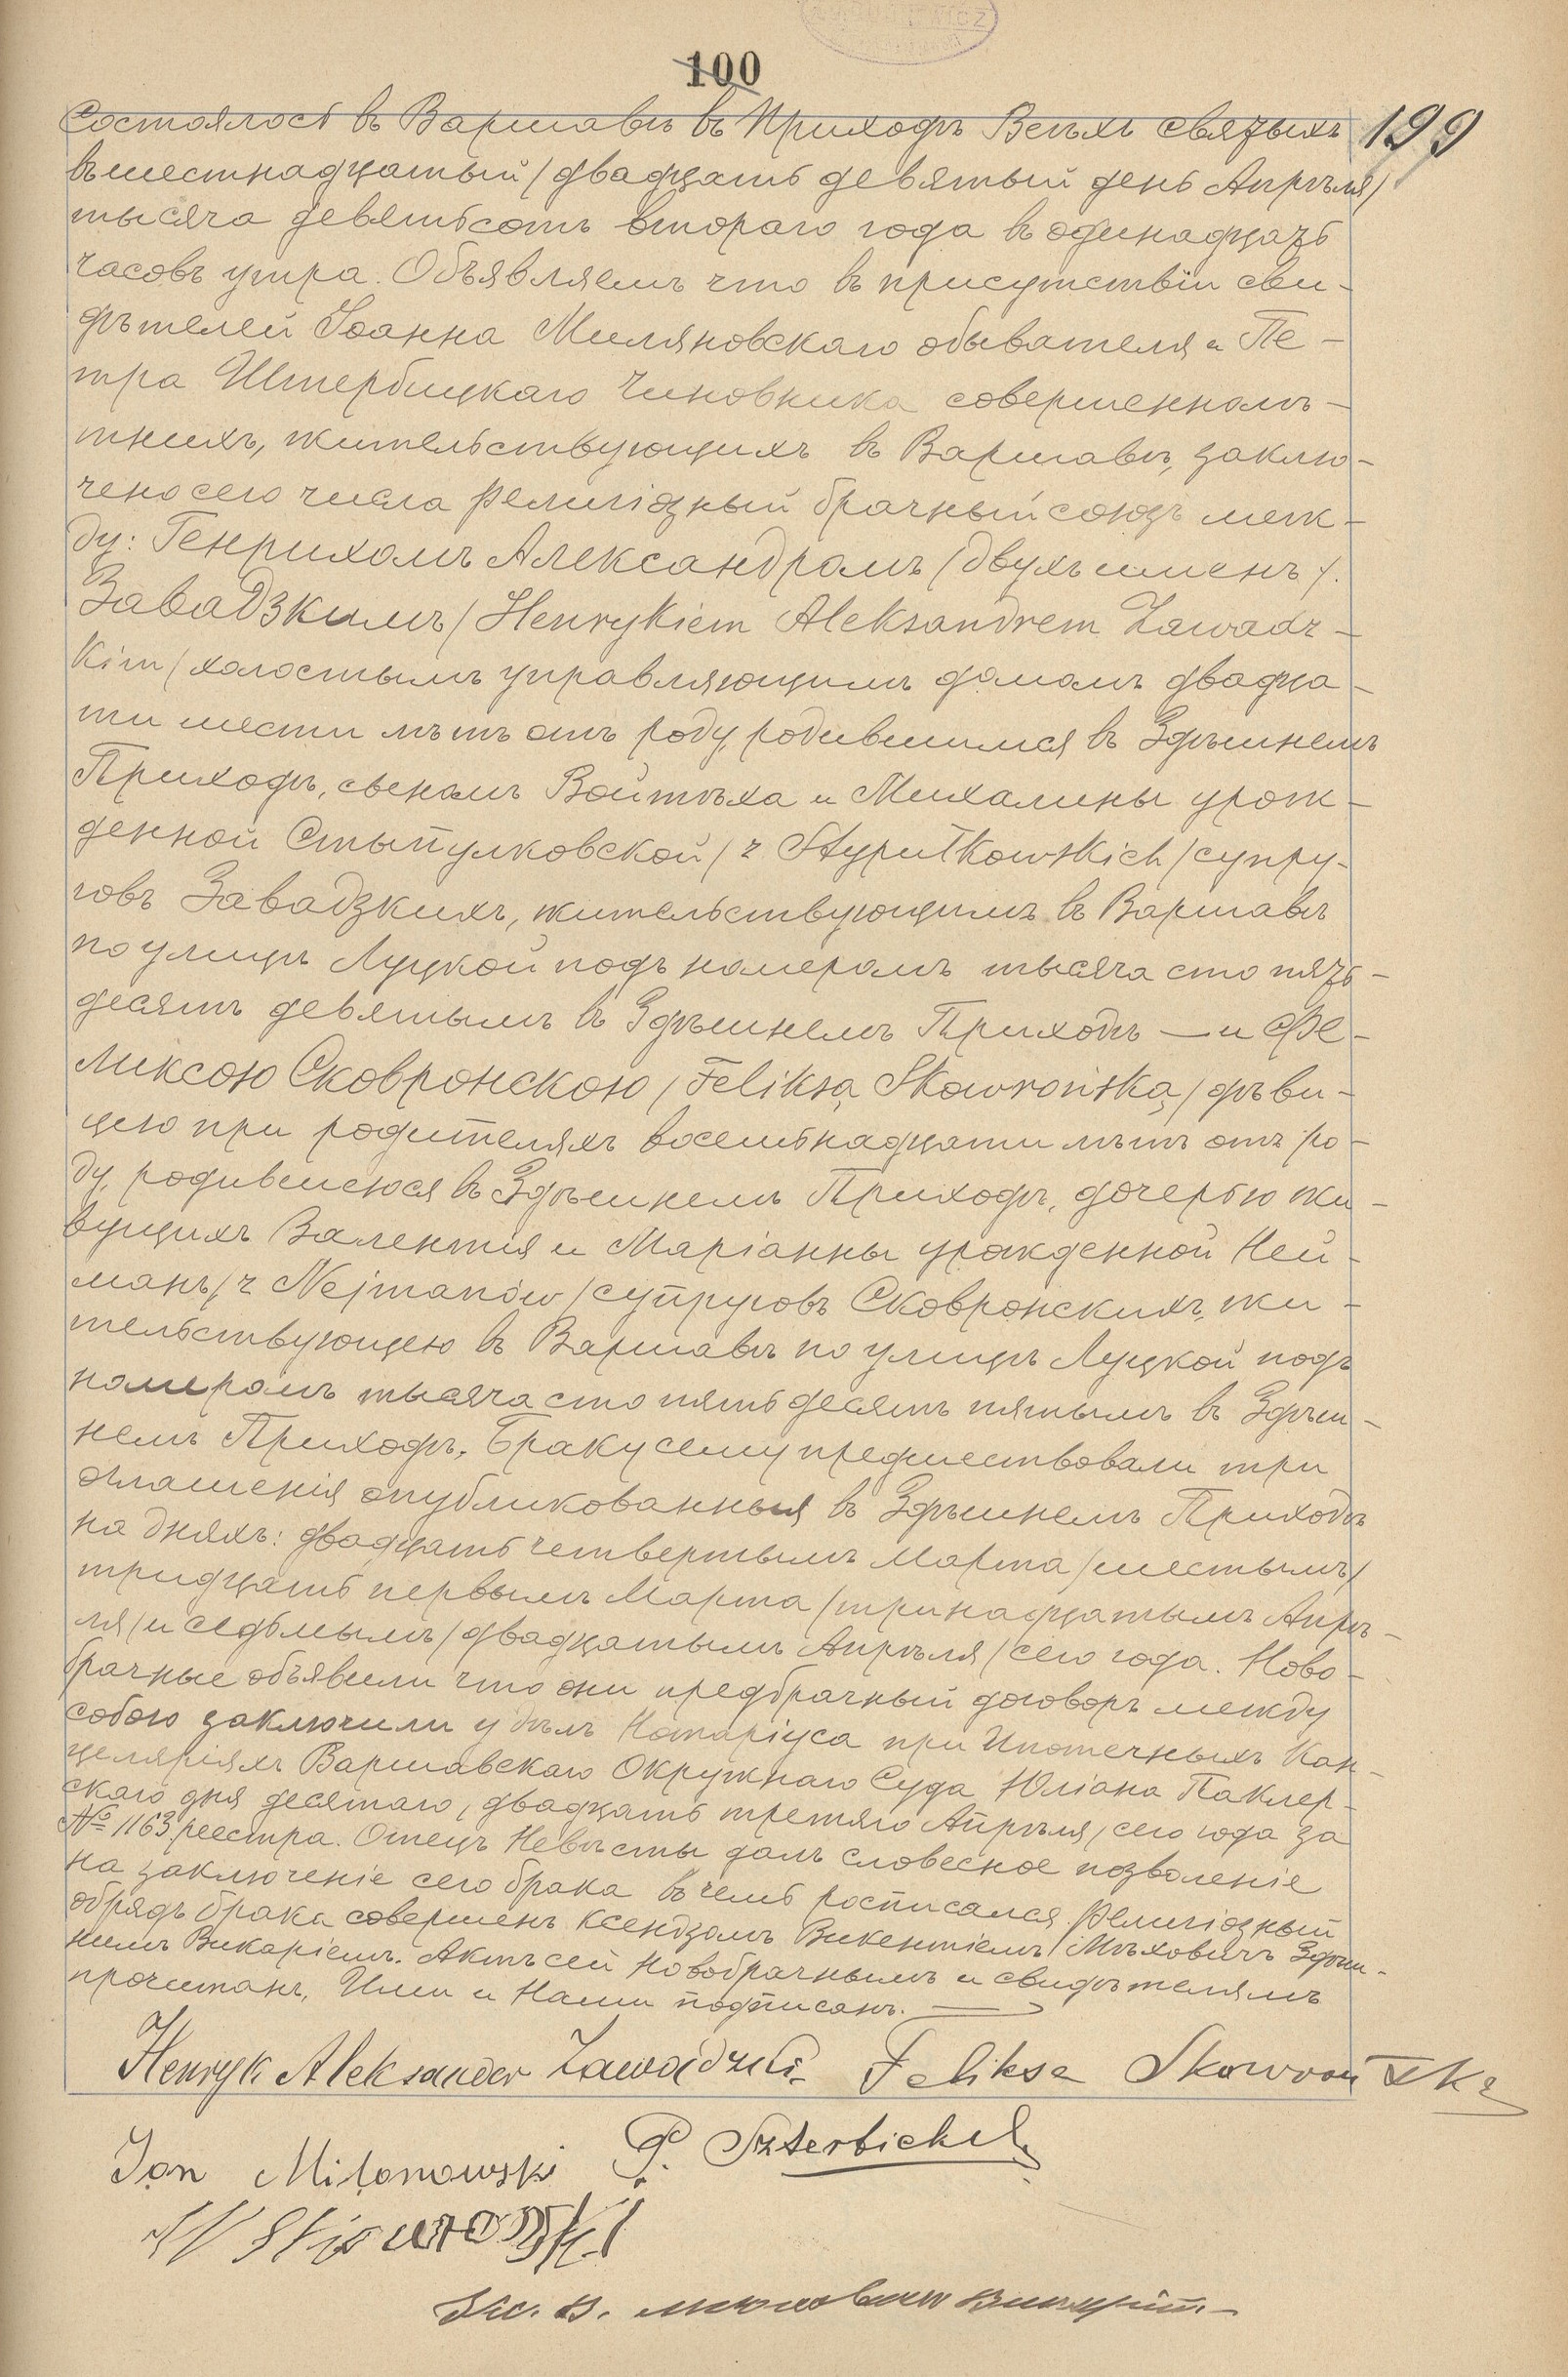 100
199
Состоялось въ Варшавѣ въ Приходѣ Всѣхъ святыхъ
въ шестнадцатый / двадцать девятый день Апрѣля /
тысяча девятьсотъ второго года въ одинадцать
часовъ утра. Объявляемъ что въ присутствіи сви-
дѣтелей Іоанна Миляновскаго обывателя и Пе-
тра Штербицкаго чиновника совершеннолѣ-
тнихъ, жительствующихъ въ Варшавѣ, заклю-
чено сего числа религіозный брачный союзъ меж-
ду: Генрихомъ Александромъ / двухъ именъ /.
Завадзкимъ / Henrykiem Aleksandrem Zawadz-
kim / холостымъ управляющимъ домомъ двадца-
ти шести лѣтъ отъ роду, родившимся въ Здѣшнемъ
Приходѣ, сыномъ Войтѣха и Михалины урож-
денной Стыпулковской / z Stypułkowskich / супру-
говъ Завадзкихъ, жительствующимъ въ Варшавѣ
по улицѣ Луцкой подъ номеромъ тысяча сто пять-
десятъ девятымъ въ Здѣшнемъ Приходѣ — и Фе-
ликсою Сковронскою / Feliksą Skowrońską / дѣви-
цею при родителяхъ восемьнадцати лѣтъ отъ ро-
ду, родившеюся въ Здѣшнемъ Приходѣ, дочерью жи-
вущихъ Валентія и Маріанны урожденной Ней-
манъ / z Nejmanów / супруговъ Сковронскихъ, жи-
тельствующею въ Варшавѣ по улицѣ Луцкой подъ
номеромъ тысяча сто пятьдесятъ пятымъ въ Здѣш-
немъ Приходѣ. Браку сему предшествовали три
оглашенія опубликованныя въ Здѣшнемъ Приходѣ
на дняхъ: двадцать четвертымъ Марта / шестымъ /
тридцать первымъ Марта / тринадцатымъ Апрѣ-
ля / и седьмымъ / двадцатымъ Апрѣля / сего года. Ново-
брачные объявили что они предбрачный договоръ между
собою заключили у дѣлъ Нотаріуса при Ипотечныхъ Кан-
целяріяхъ Варшавскаго Окружнаго Суда Юліана Паклер-
скаго дня десятаго, двадцать третяго Апрѣля, сего года за
№ 1163 реестра. Отецъ Невѣсты далъ словесное позволеніе
на заключеніе сего брака въ чемъ росписался Религіозный
обрядъ брака совершенъ Ксендзомъ Викентіемъ Мѣховичъ Здѣш-
нимъ Викаріемъ. Актъ сей Новобрачнымъ и свидѣтелямъ
прочитанъ, Ими и Нами подписанъ. —
Henryk Aleksander Zawadzki Feliksa Skowrońska
Jan Milanowski P. Szterbicki
W Skowroński
Кс. В.